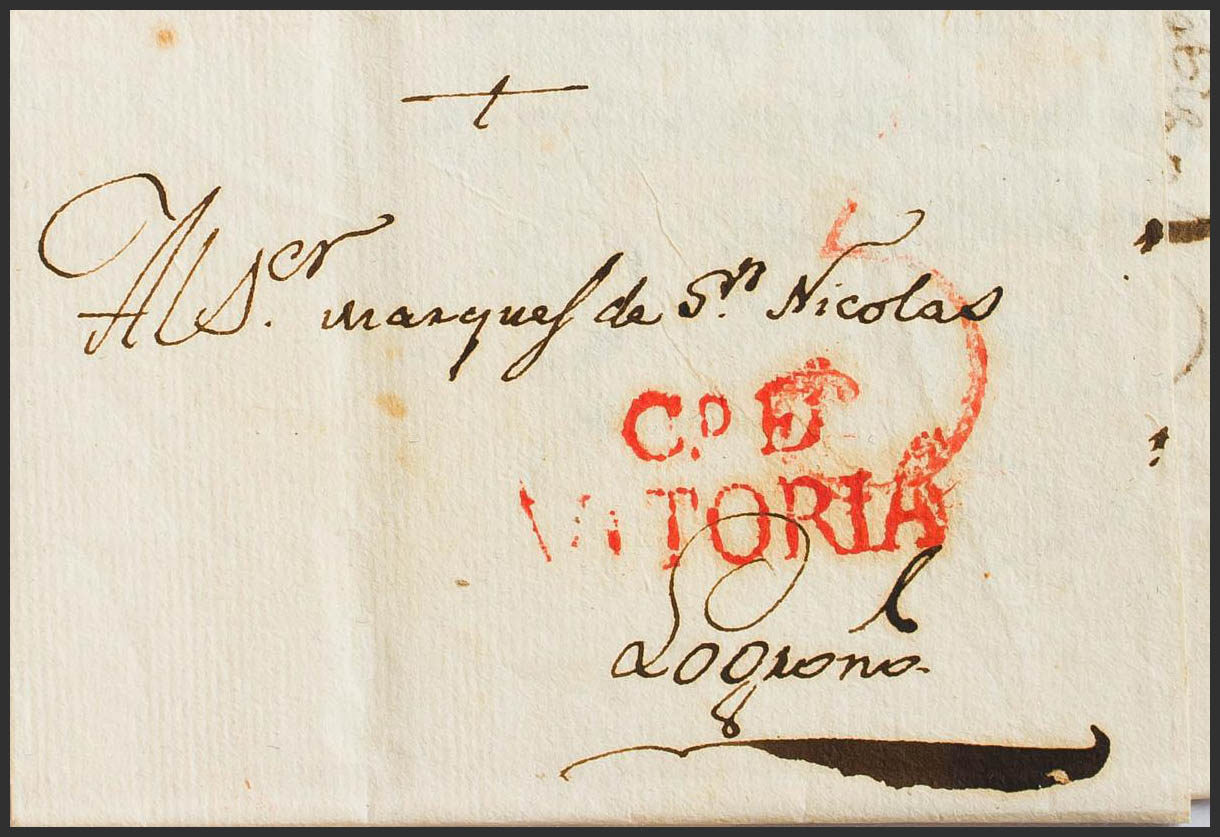 +
Al S.or marques de S.n Nicolas
C.D D
VITORIA
Logrono